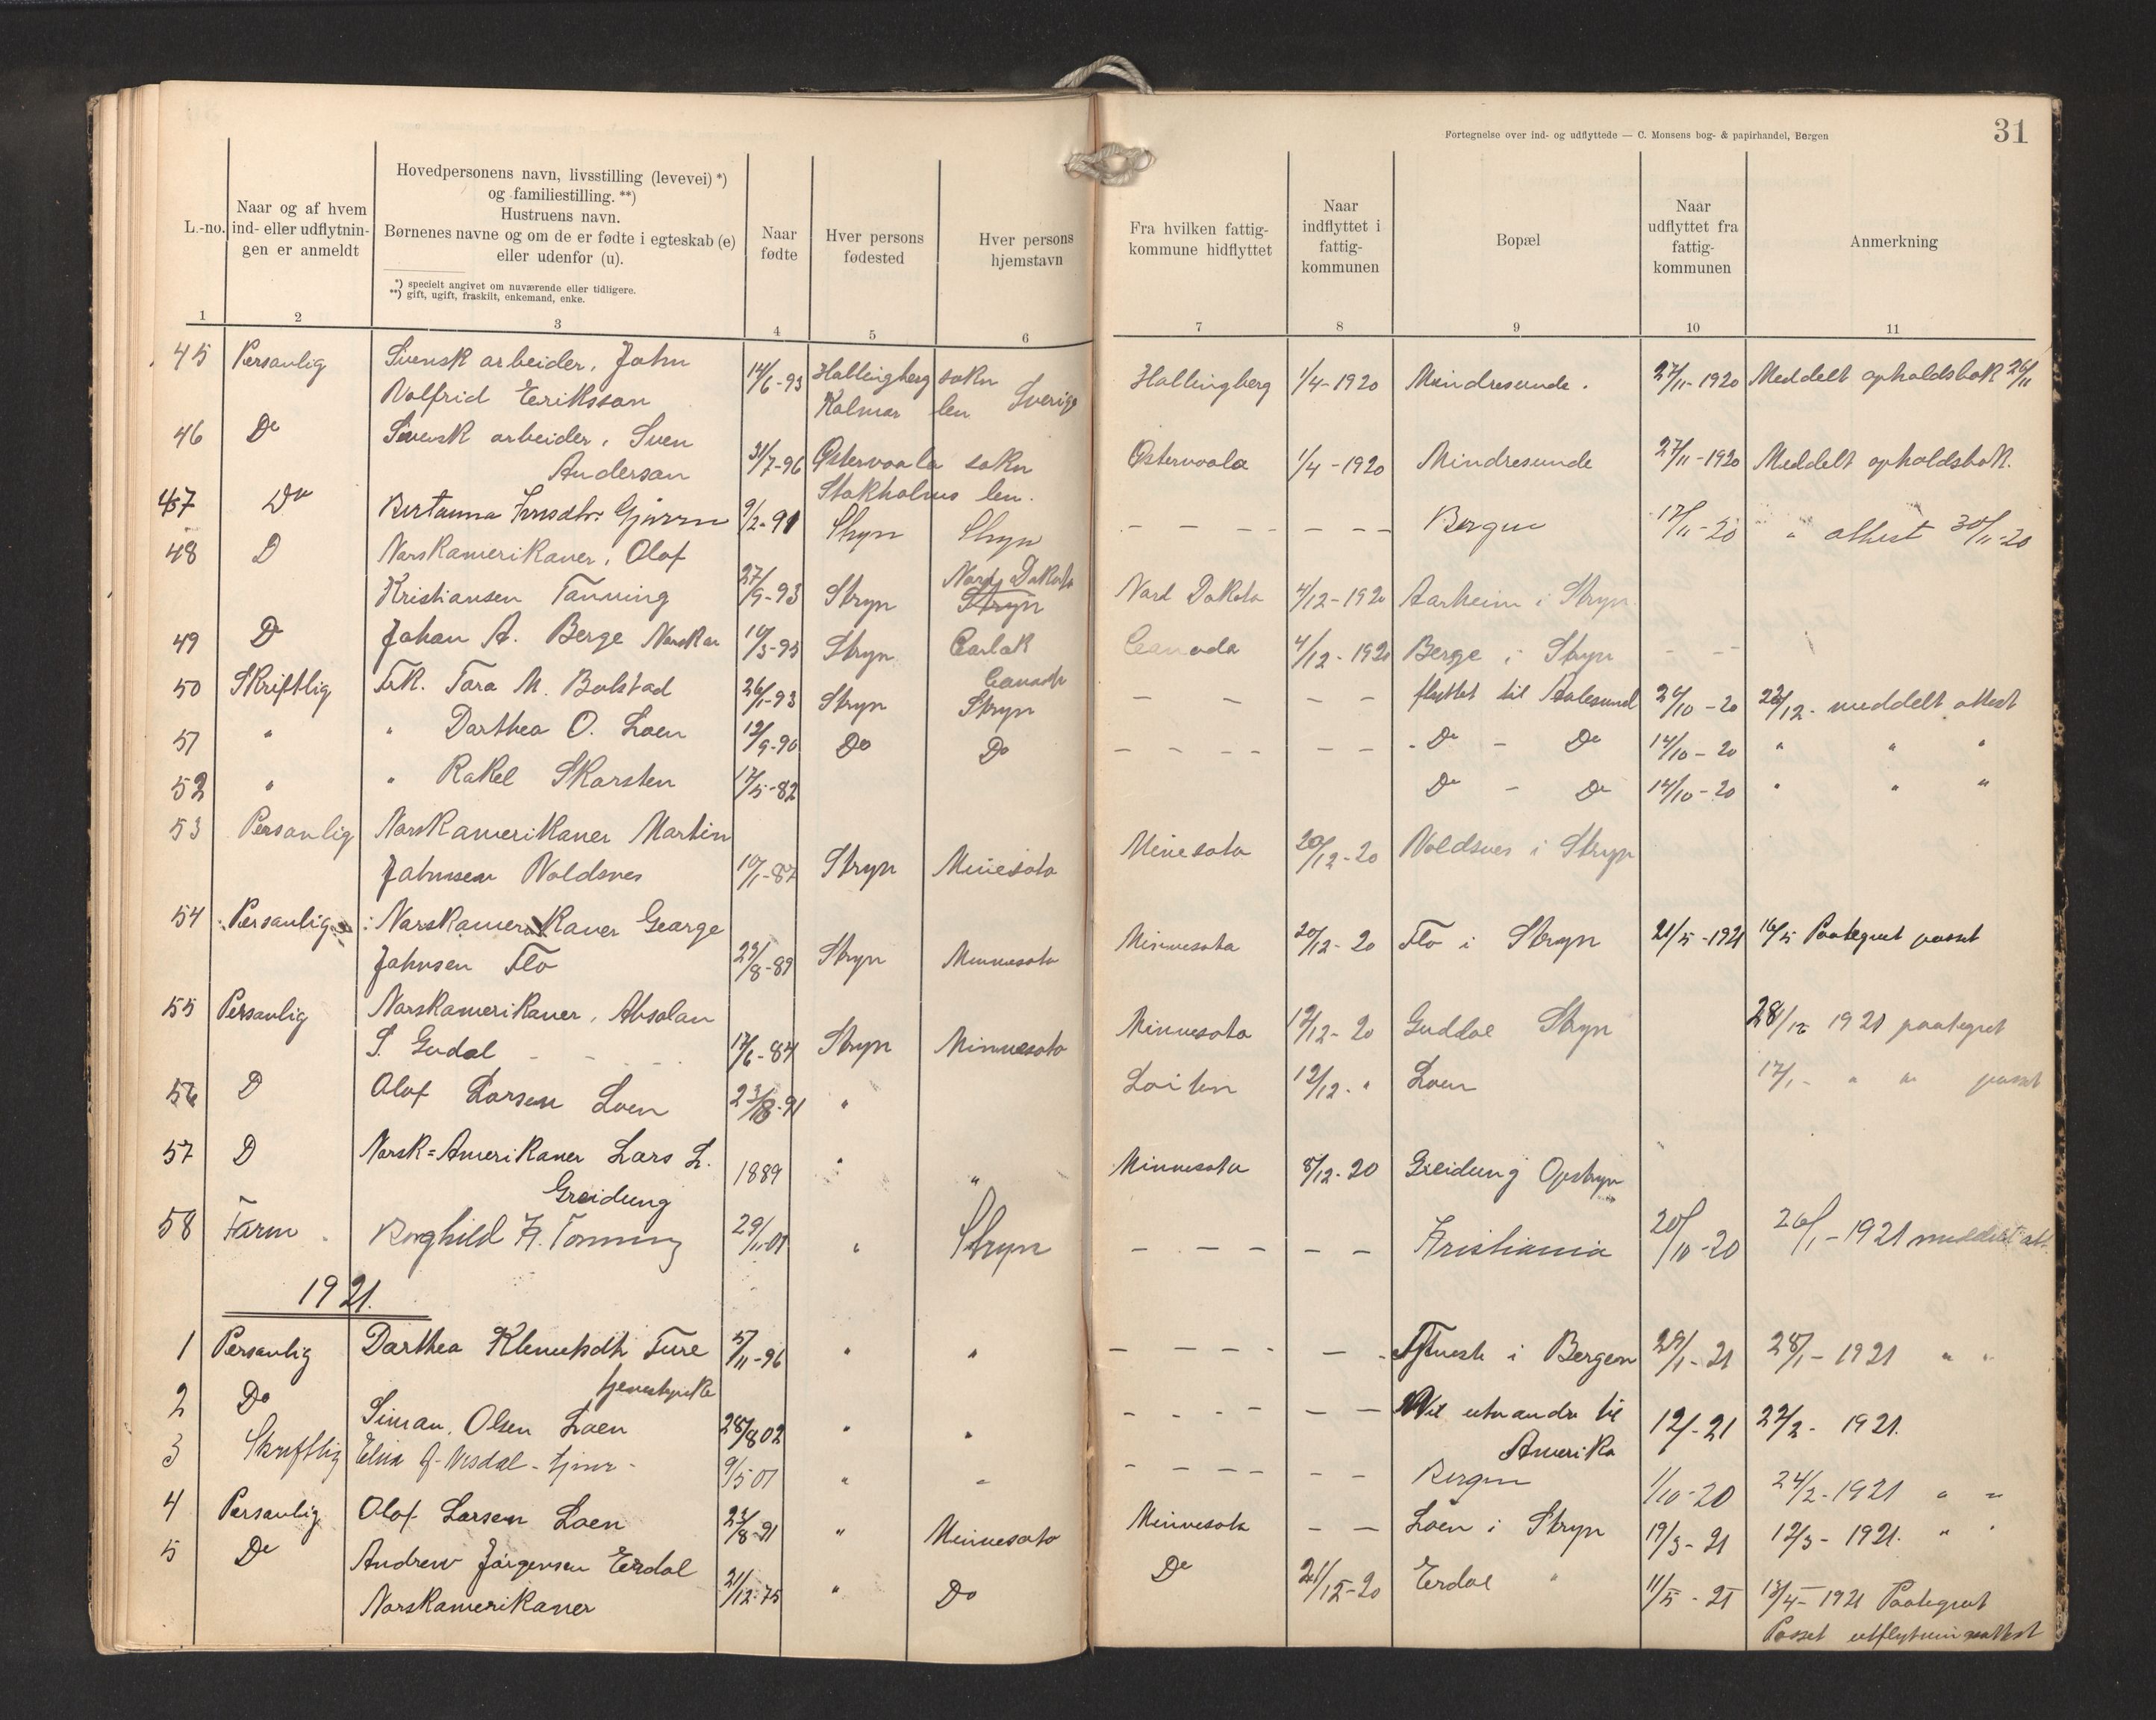 Fortegnelse over ind- og udflyttede — C. Monsens bog- & papirhandel, Bergen
31
L.-no.
Naar og af hvem
ind- eller udflytnin-
gen er anmeldt
Hovedpersonens navn, livsstilling (levevei) *)
og familiestilling. **)
Hustruens navn.
Børnenes navne og om de er fødte i egteskab (e)
eller udenfor (u).
*) specielt angivet om nuværende eller tidligere.
**) gift, ugift, fraskilt, enkemand, enke.
Naar
fødte
Hver persons
fødested
Hver persons
hjemstavn
Fra hvilken fattig-
kommune hidflyttet
Naar
indflyttet i
fattig-
kommunen
Bopæl
Naar
udflyttet fra
fattig-
kommunen
Anmerkning
1 2 3 4 5 6 7 8 9 10 11
45 Personlig Svensk arbeider, John 14/6-93 Hallingberg sokn Hallingberg 1/4-1920 Mindresunde. 27/11-1920 Meddelt opholdsbok 26/11
Volfrid Eriksson Kalmar len Sverige
46 Do Svensk arbeider, Sven
Anderson 31/7-96 Østervaala sokn Østervaala 1/4-1920 Mindresunde 27/11-1920 Meddelt opholdsbok.
Stokholms len.
47 Do Gjørven 9/2-91 Stryn Stryn - - - - - - - Bergen 17/11-20 " attest 30/11-20
48 D Norskamerikaner, Olof Nord Dakota
Kristiansen Tonning 27/9-93 Stryn Stryn Nord Dakota 4/12-1920 Aarheim i Stryn
49 D Johan A. Berge Norskam 10/3-95 Stryn Canada 4/12-1920 Berge i Stryn - - -
Canada
50 Skriftlig Frk. Tora M. Bolstad 26/1-93 Stryn Stryn - - - - flyttet til Aalesund 20/10-20 22/12- meddelt attest
51 " " Dorthea O. Loen 12/9-90 Do Do - - - - - - Do - Do 14/10-20 " " "
52 " " Rakel Skarsten 17/5-82 Do - Do 14/10-20 " " "
53 Personlig Norskamerikaner Martin
Johnsen Voldsnes 10/1-87 Stryn Minesota Minesota 20/12-20 Voldsnes i Stryn
54 Personlig Norskamerikaner George
Johnsen Flo 23/8-89 Stryn Minnesota Minnesota 20/12-20 Flo i Stryn 21/5-1921 16/5 Paategnet passet
55 Personlig Norskamerikaner, Absolon
S. Gudal - - - 17/6-84 Stryn Minnesota Minnesota 12/12-20 Guddal Stryn 28/12 1921 paategnet
56 D Olof Larsen Loen 23/8-91 " 12/12- " Loen 17/1- " " passet
57 D Norsk=Amerikaner Lars L. 1889 " " Minnesota 8/12-20 Greidung Opstryn
Greidung
58 Form. Borghild K. Tonning 29/11-01 " Stryn - - - - - - Kristiania 20/10-20 26/1-1921 meddelt att.
1921.
1 Personlig Dorthea Klemetsdtr Fure 5/11-96 " " - - - - - i Bergen 29/1-21 28/1-1921 " "
2 Do Simon Olsen Loen 28/8 02 " " - - - - - - Vil utvandre til 12/-21 22/2- 1921.
Amerika
3 Skriftlig Visdal - 9/5 01 " " - - - - - - Bergen 1/10-20 24/2-1921 " "
4 Personlig Olof Larsen Loen 23/8-91 " Minnesota Minnesota - - Loen i Stryn 19/3-21 12/3-1921. " "
5 Do Andrew Jørgensen Erdal 21/12-75 " Do Do 21/12-20 Erdal " 11/5-21 13/4-1921 Paategnet
Norskamerikaner Passet